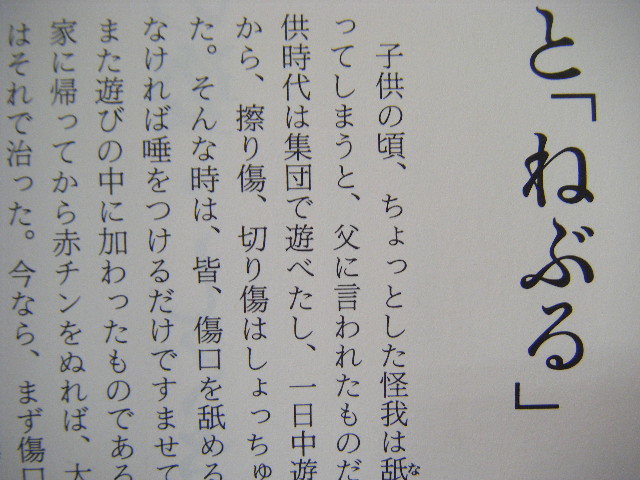 と「ねぶる」
子供の頃、ちょっとした怪我は舐
な
ってしまうと、父に言われたものだ
供時代は集団で遊べたし、一日中遊
から、擦り傷、切り傷はしょっちゅ
た。そんな時は、皆、傷口を舐める
なければ唾をつけるだけですませて
また遊びの中に加わったものである
家に帰ってから赤チンをぬれば、大
はそれで治った。今なら、まず傷口